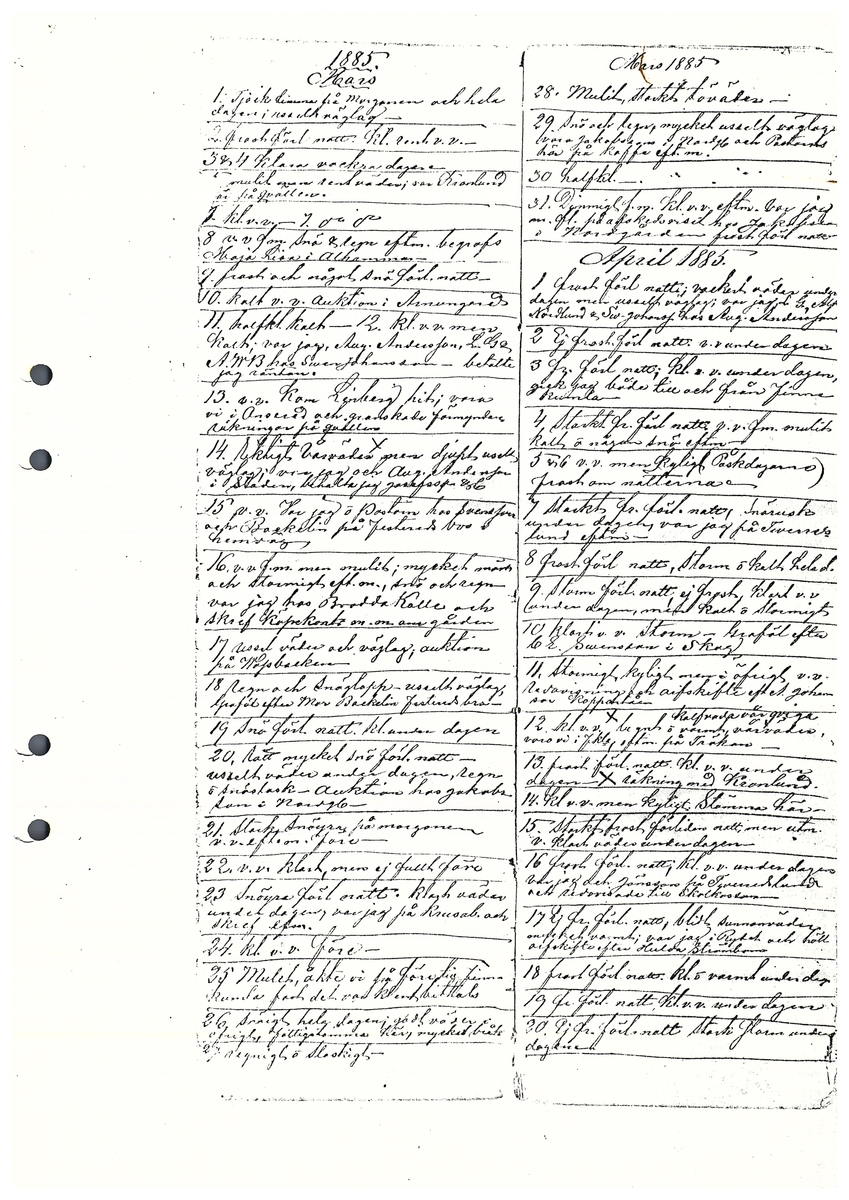 1885.
Mars
1. Tjock dimma på Morgonen och hela
dagen; usselt väglag —
2. frost förl natt. kl. rent v.v. —
3 & 4 Klara vackra dagar
mulit men rent väder; var Kronlund
här på qvällen.
7. kl. v.v. —
8 v.v f.m. snö & regn eftm. begrofs
Maja Lisa i Alhammar —
9. frost och något snö förl. natt —
10. kalt v.v. Auktion i Arnungared
11. halfkl. kalt — 12. kl. v.v. men
kalt; var jag, Aug. Andersson, L. G &
A. W B hos Swen Johansson — betalte
jag räntan.
13. v.v. Kom Linberg hit; vora
vi i Onsered och granskade förmyndare
räkningar på qvällen
14. Rikligt vårväder men djupt usselt
väglag; var jag och Aug. Andersson
i Staden, betalte jag Josefsson &c
15 v.v. Var jag o Pastorn hos Svensson
och Backelin på Jestered
hemväg
16. v.v f.m. men mulit; mycket mörkt
och stormigt eft.m., snö och regn
var jag hos Brodda Kalle och
skref Köpekont. m.m. om gården
17 usselt väder och väglag; auktion
på Wopsbacken
18 Regn och Snöglopp — usselt väglag,
Grafölt efter Mor Backelin Jestered bra —
19 Snö förl. natt. kl. under dagen
20, Rätt mycket snö förl. natt —
usselt väder under dagen, regn
o snöslask — Auktion hos Jakobs-
son i Nordgb —
21. Stark Snöyra på morgonen
v.v. eft.m. före —
22. v.v. klart, men ej fullt före
23 Snöyra förl natt. klart väder
under dagen, var jag på Knusab. och
skref eftm.
24. kl. v.v. före —
25 Mulet, åkte vi på före till Jinna
kumla fast det var klent bitttals
26 Snöigt hela dagen; godt väder i
öfrigt, fattigstämma här, mycket bråk
27. Regnigt o Slaskigt —
Mars 1885
28. Mulit, starkt töväder —
29. Snö och regn, mycket usselt väglag
vora Jakobssons i Nordgb och Pastorns
här på kaffe eft.m.
30 halfkl. — " "
31. Dimmigt f.m. kl. v.v. eftm. var jag
m. fl. på afskedsvisit hos Jakobsson
i Nordgården frost förl natt
April 1885.
1 frost förl natt; vackert väder under
dagen men usselt väglag; var jag
Nordlund & Sv. Johanss hos Aug. Andersson
2 Ej frost förl natt. v.v under dagen
3 fr. förl natt, kl. v.v. under dagen,
gick jag både till och från Jinna
kumla —
4, Starkt fr. förl natt v.v. f.m. mulit
kalt o någon snö eftm —
5 & 6 v.v. men kyligt Påskdagarne)
frost om nätterna —
7 Starkt fr. förl. natt, Snörusk
under dagen, var jag på Tvereds
lund eftm —
8 frost förl natt, Storm o kalt hela d.
9. Storm förl. natt, ej frost, klart v.v
under dagen, men kalt o Stormigt
10. klart v. v. Storm — Grafölt efter
C E. Swensson i Skog
11, Stormigt, kyligt men i öfrigt v.v.
Redovigning och arfskifte efter Johan
son Kopparhien
12. kl. v.v. Regnb o varmt, vårväder,
kalfvade vår qviga
voro vi i Jkla, eftm. på Träkan —
13. frost förl. natt. kl. v.v. under
dagen — X räkning med Kronlund.
14. kl v.v. men kyligt Stämma här —
15. Starkt frost förliden natt, men utm.
v. klart väder under dagen —
16 frost förl. natt, kl. v.v. under dagen
var jag och Jönsson på Tveredslund
och redovisade till skolkassan —
17 Ej fr. förl. natt, blidt sunnanväder,
mycket varmt; var jag i Rydet och höll
arfskifte efter Hulda Strömbom
18 frost förl. natt. kl. o varmt under dag
19 fr förl. natt, kl. v.v. under dagen
20. Ej fr. förl. natt stark Storm under
dagen.